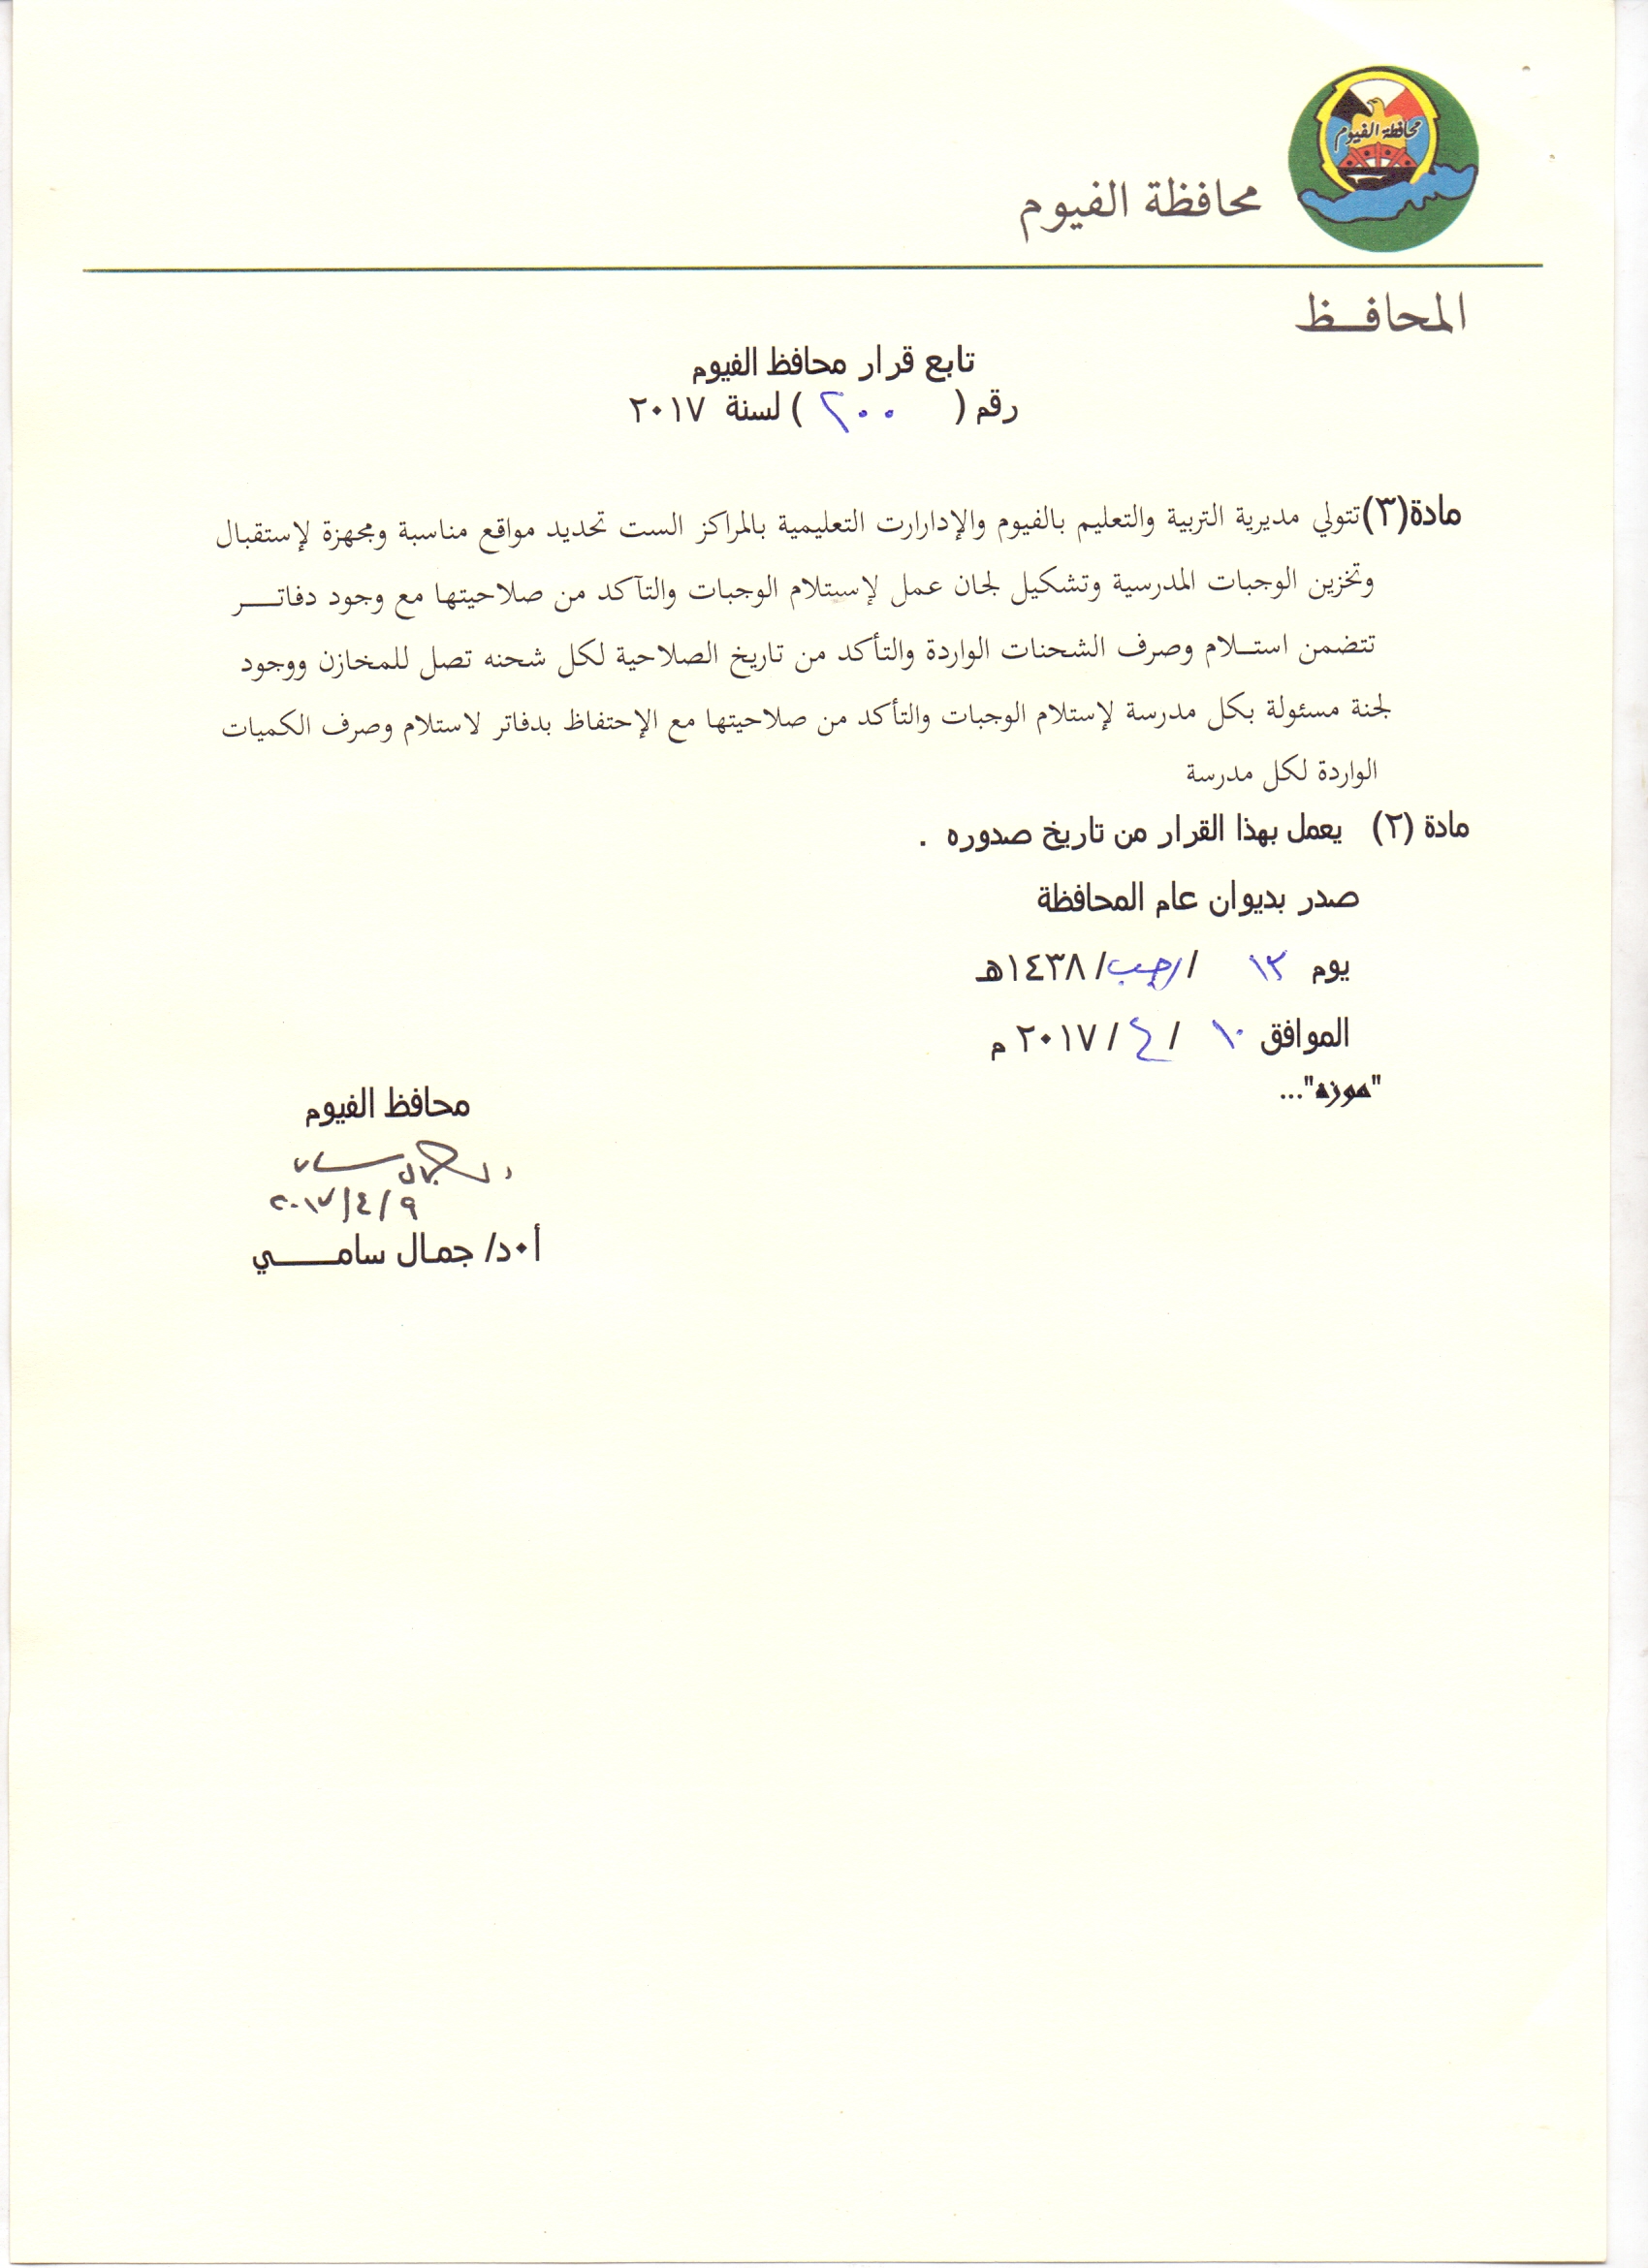 محافظة الفيوم
محافظة الفيوم
المحافــظ
تابع قرار محافظ الفيوم
رقم ( ٢٠٠ ) لسنة ٢٠١٧
مادة(٣)تتولي مديرية التربية والتعليم بالفيوم والإدارارت التعليمية بالمراكز الست تحديد مواقع مناسبة ومجهزة لإستقبال
وتخزين الوجبات المدرسية وتشكيل لجان عمل لإستلام الوجبات والتآكد من صلاحيتها مع وجود دفاتــر
تتضمن استـلام وصرف الشحنات الواردة والتأكد من تاريخ الصلاحية لكل شحنه تصل للمخازن ووجود
لجنة مسئولة بكل مدرسة لإستلام الوجبات والتأكد من صلاحيتها مع الإحتفاظ بدفاتر لاستلام وصرف الكميات
الواردة لكل مدرسة
مادة (٢) يعمل بهذا القرار من تاريخ صدوره .
صدر بديوان عام المحافظة
يوم ١٣ / رجب / ١٤٣٨هـ
الموافق ١٠ / ٤ / ٢٠١٧ م
"موزه"...
محافظ الفيوم
٢٠١٧/٤/٩
أ٠د/ جمـال سامـــــي